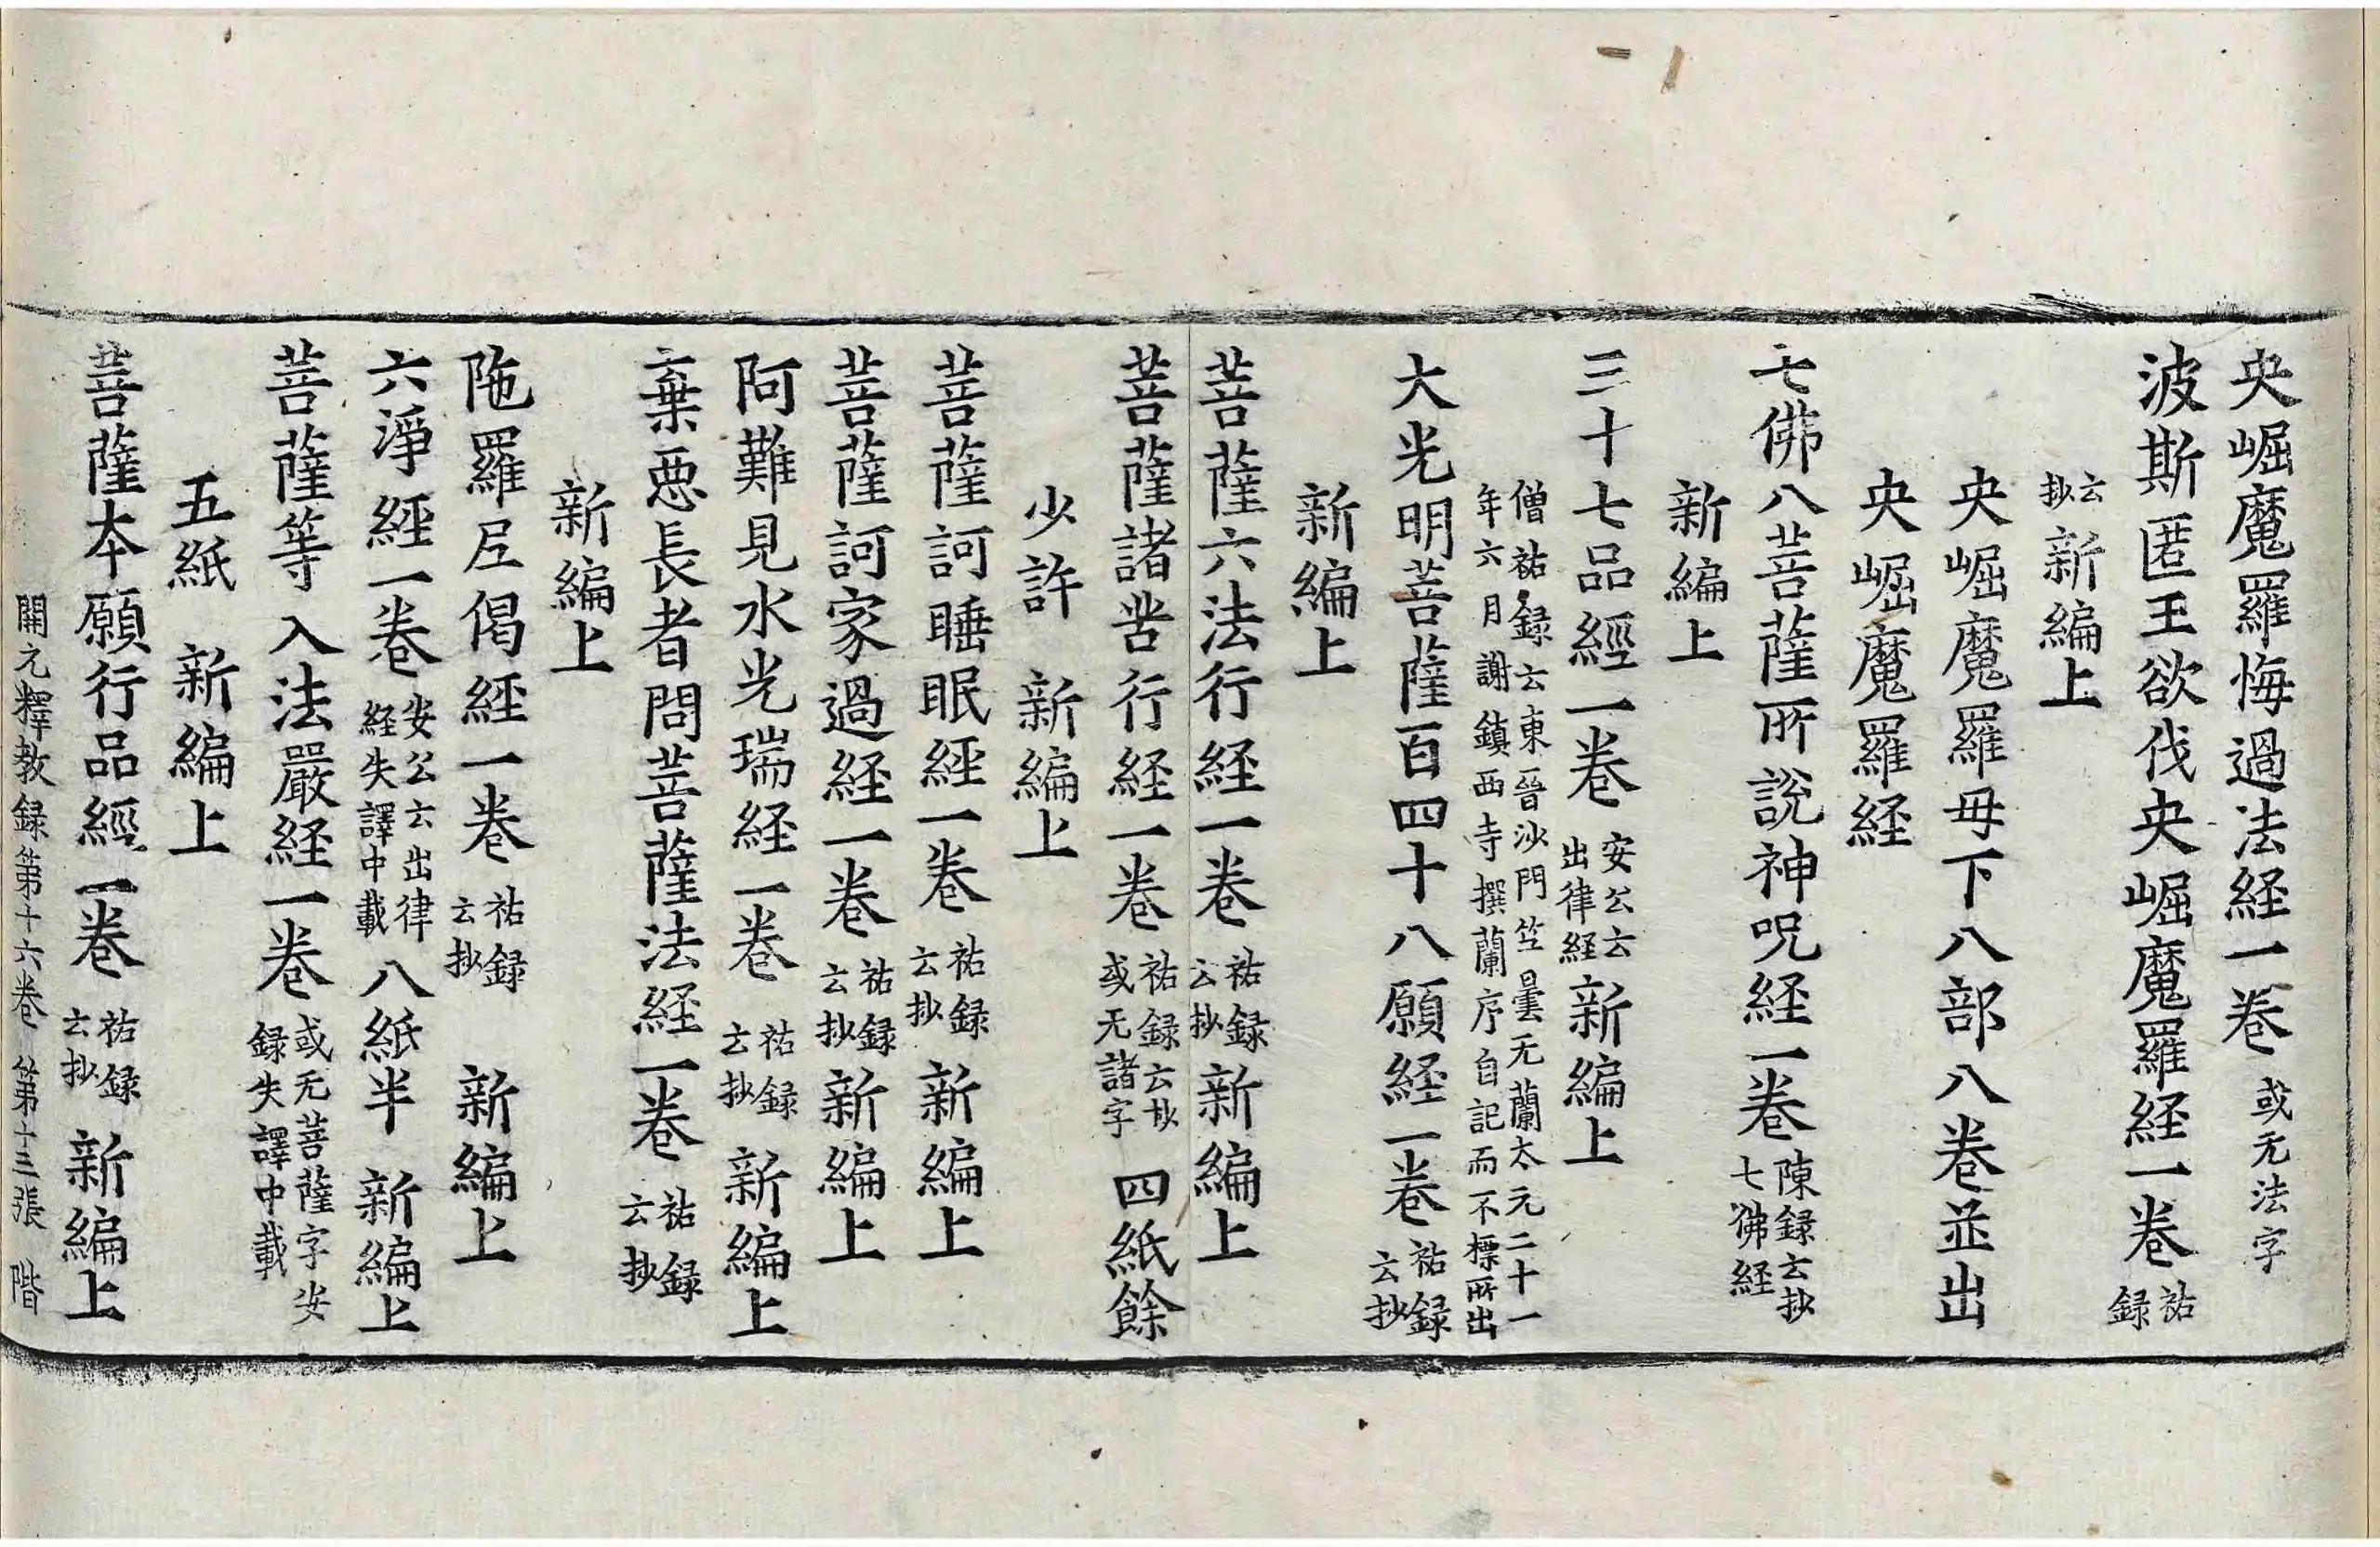 央崛魔羅悔過法経一卷或无法字
波斯匿王欲伐央崛魔羅経一卷祐録
云抄新編上
央崛魔羅毋下八部八卷並出
央崛魔羅経
七佛八菩薩所說神呪経一卷陳録云抄七佛経
新編上
三十七品經一卷安公云出律経新編上
僧祐録云東晉沙門竺曇无蘭太元二十一
年六月謝鎮西寺撰蘭序自記而不標所出
大光明菩薩百四十八願経一卷祐録云抄
新編上
菩薩六法行経一卷祐録云抄新編上
菩薩諸苦行経一卷祐録云抄或无諸字四紙餘
少許新編上
菩薩訶睡眠經一卷祐録云抄新編上
菩薩訶家過経一卷祐録云抄新編上
阿難見水光瑞経一卷祐録云抄新編上
棄惡長者問菩薩法経一卷祐録云抄
新編上
陁羅尼偈經一卷祐録云抄新編上
六淨經一卷安公云出律経失譯中載八紙半新編上
菩薩等入法嚴経一卷或无菩薩字安録失譯中載
五紙新編上
菩薩本願行品經一卷祐録云抄新編上
開元釋教録第十六卷第十三張階